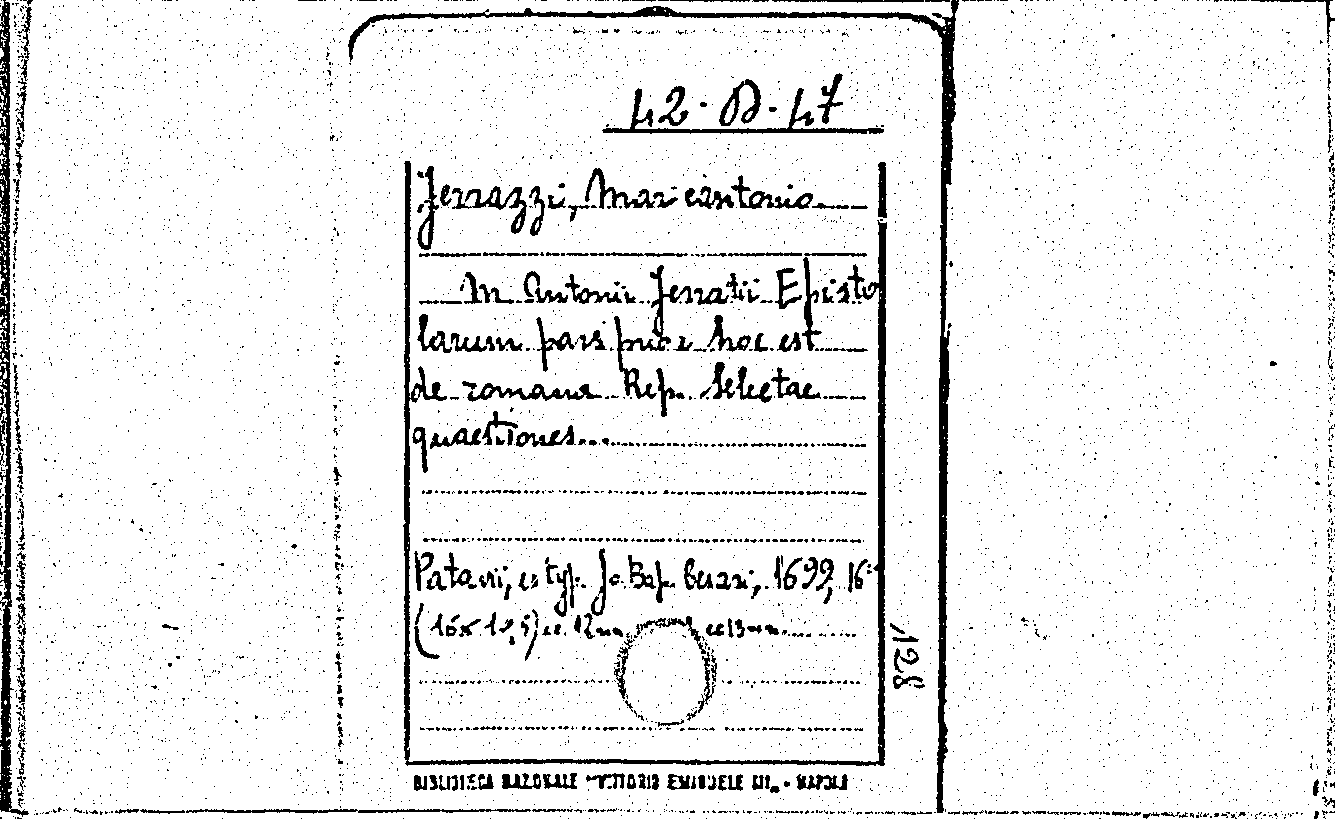 42. D. 47
Ferrazzi, Marcantonio
M. Antonii Ferratii Episto
larum pars prior hoc est
de romana Rep. Selectae
quaestiones...
Patavii, ex typ. Jo. Bap. 1699, 16°
(16x 12,5) cc. 12 nn cc 13 nn
128
BIBLIOTECA NAZIONALE "VITTORIO EMANUELE III„ - NAPOLI